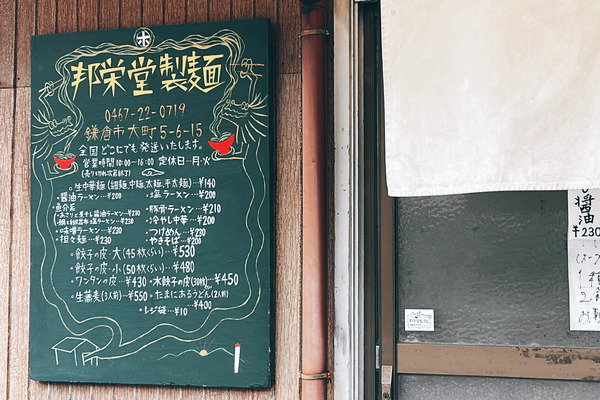 ホ
邦栄堂製麺
0467-22-0719
鎌倉市大町5-6-15
全国どこにでも発送いたします。
営業時間10:00〜16:00 定休日 月・火
(売り切れ次第終了)
・生中華麺(細麺、中麺、太麺、平太麺)…¥140
・醤油ラーメン…¥200 ・塩ラーメン…¥200
・魚介系 ・豚骨ラーメン…¥210
・あさりと煮干し醤油ラーメン…¥230 ・冷やし中華…¥200
塩ラーメン…¥230
・味噌ラーメン…¥230 ・つけめん…¥230
・担々麺…¥230 ・やきそば…¥200
・餃子の皮・大(45枚くらい)…¥530
・餃子の皮・小(50枚くらい)…¥480
・ワンタンの皮…¥430 ・水餃子の皮(30枚)…¥450
・生蕎麦(3人前)…¥550 ・たまにあるうどん(2人前)
…¥400
・レジ袋…¥10
醤油
¥230